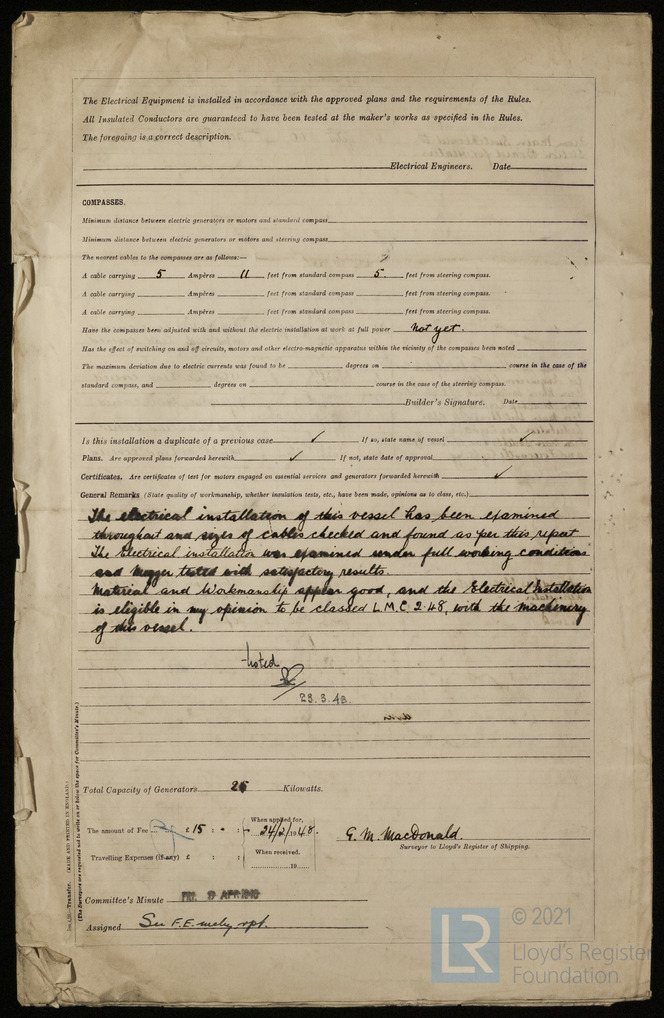 The Electrical Equipment is installed in accordance with the approved plans and the requirements of the Rules.
All Insulated Conductors are guaranteed to have been tested at the maker's works as specified in the Rules.
The foregoing is a correct description.
Electrical Engineers. Date
COMPASSES.
Minimum distance between electric generators or motors and standard compass
Minimum distance between electric generators or motors and steering compass
The nearest cables to the compasses are as follows:—
A cable carrying 5 Ampères 11 feet from standard compass 5 feet from steering compass.
A cable carrying Ampères feet from standard compass feet from steering compass.
A cable carrying Ampères feet from standard compass feet from steering compass.
Have the compasses been adjusted with and without the electric installation at work at full power Not yet.
Has the effect of switching on and off circuits, motors and other electro-magnetic apparatus within the vicinity of the compasses been noted
The maximum deviation due to electric currents was found to be degrees on course in the case of the
standard compass, and degrees on course in the case of the steering compass.
Builder's Signature. Date
Is this installation a duplicate of a previous case ✓ If so, state name of vessel ✓
Plans. Are approved plans forwarded herewith ✓ If not, state date of approval
Certificates. Are certificates of test for motors engaged on essential services and generators forwarded herewith ✓
General Remarks (State quality of workmanship, whether insulation tests, etc., have been made, opinions as to class, etc.)
The electrical installation of this vessel has been examined
throughout and sizes of cables checked and found as per this report
The Electrical installation was examined under full working conditions
and Megger tested with satisfactory results.
Material and Workmanship appear good, and the Electrical Installation
is eligible in my opinion to be classed L.M.C. 2.48, with the machinery
of this vessel.
Noted
23.3.48.
Total Capacity of Generators Kilowatts.
The amount of Fee £ 15 : - : - When applied for, 24/2/1948.
Travelling Expenses (if any) £ : : When received, 19
G. M. MacDonald.
Surveyor to Lloyd's Register of Shipping.
Committee's Minute FRI. 9 APR
Assigned See F.E. mchy. rpt.
Transfer. (MADE AND PRINTED IN ENGLAND.)
(The Surveyors are requested not to write on or below the space for Committee's Minute.)
LR © 2021
Lloyd's Register
Foundation